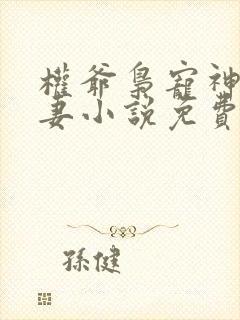 權爺梟寵神
妻小說免費
孫健